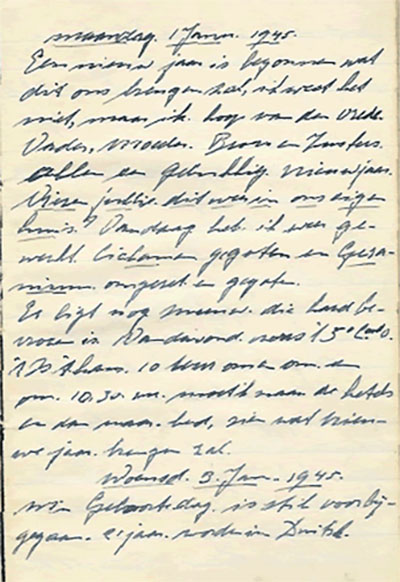 maandag. 1 Janu. 1945.
Een nieuw jaar is begonnen wat
dit ons brengen zal, ik weet het
niet, maar ik hoop van den vrede.
Vader, moeder. Broer en Zusters.
allen een Gelukkig nieuwjaar.
Vieren jullie dit weer in ons eigen
huis? Vandaag heb ik weer ge-
werkt. Ciclamen gegoten en Gera-
nium omgezet en gegoten.
Er ligt nog sneeuw die hard be-
vroren is. Vanavond
10 uur
om. 10.30. naar de
en dan naar bed, zien wat nieu-
we jaar brengen zal.
Woensd. 3. Jan. 1945.
mijn Geboortedag is stil voorbij-
gegaan. 21 jaar in Duitsl.